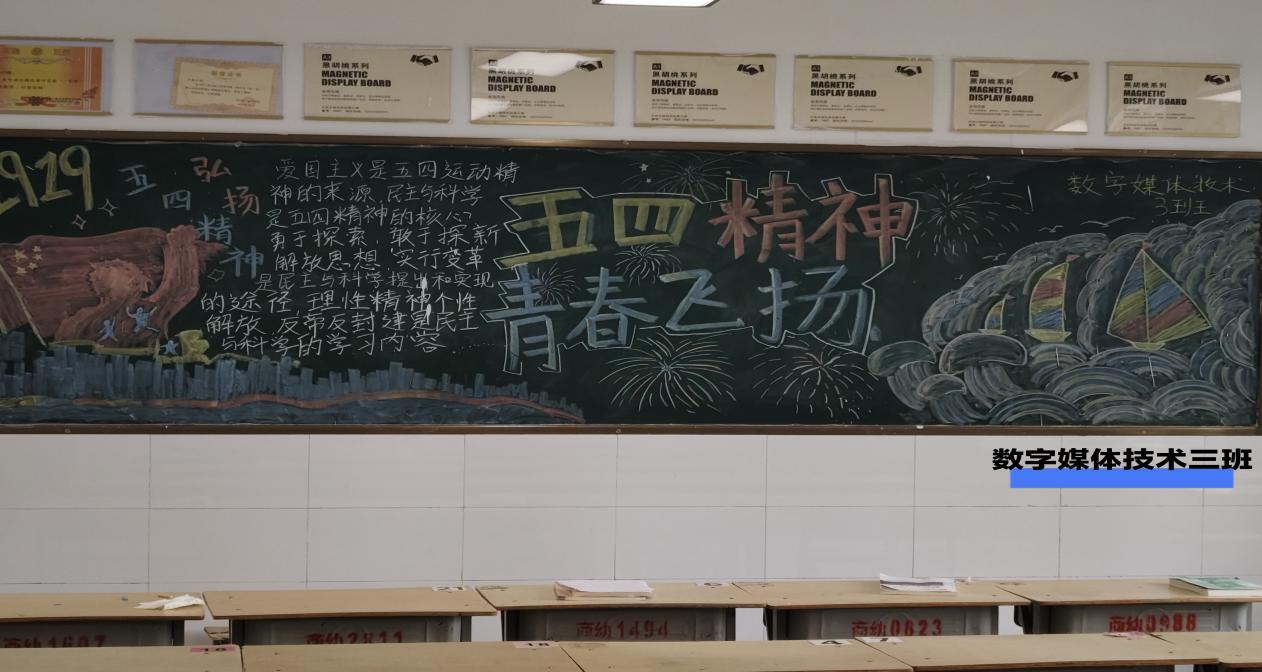 荣誉证书
A3
黑胡桃系列
MAGNETIC
DISPLAY BOARD
A3
黑胡桃系列
MAGNETIC
DISPLAY BOARD
A3
黑胡桃系列
MAGNETIC
DISPLAY BOARD
A3
黑胡桃系列
MAGNETIC
DISPLAY BOARD
A3
黑胡桃系列
MAGNETIC
DISPLAY BOARD
A3
黑胡桃系列
MAGNETIC
DISPLAY BOARD
1919
五四
弘扬
精神
爱国主义是五四运动精
神的来源,民主与科学
是五四精神的核心?
勇于探索、敢于探新
解放思想、实行变革
是民主与科学提出和实现
的途径,理性精神个性
解放、反帝反封建是民主
与科学的学习内容......
五四精神
青春飞扬
数字媒体技术
3班
数字媒体技术三班
商幼1607
商幼2811
商幼1494
商幼0823
商幼0988